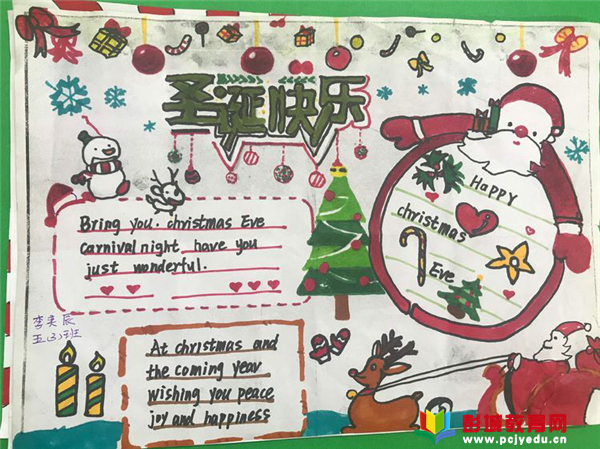 圣诞快乐
Happy
christmas
Eve
Bring you. christmas Eve
carnival night, have you
just wonderful.
李奕辰
五(3)班
At christmas and
the coming year
wishing you peace
joy and happiness
彭城教育网
www.pcjyedu.cn